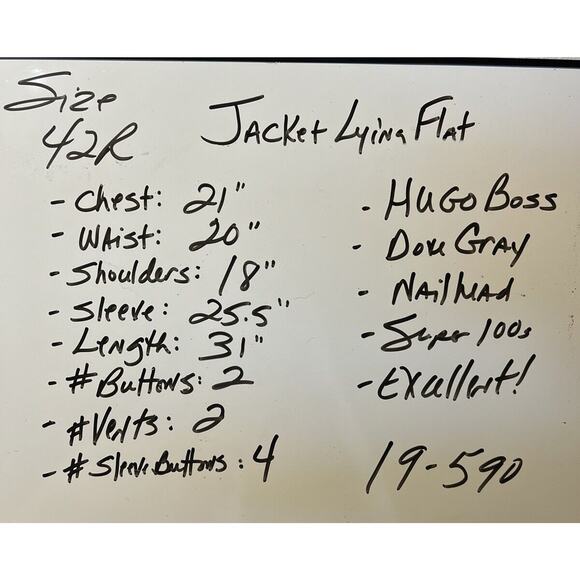 Size
42R
Jacket Lying Flat
- Chest: 21"
- Waist: 20"
- Shoulders: 18"
- Sleeve: 25.5"
- Length: 31"
- # Buttons: 2
- # Vents: 2
- # Sleeve Buttons: 4
- HUGO BOSS
- Dove Gray
- Nailhead
- Super 100s
- Excellent!
19-590